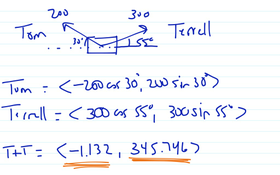 200 300
Tom 30° 55° Terrell
Tom = <-200 cos 30°, 200 sin 30°>
Terrell = <300 cos 55°, 300 sin 55°>
T+T = <-1.132, 345.746>